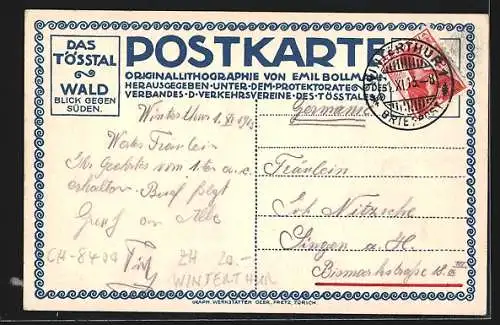 DAS
TÖSSTAL
WALD
BLICK GEGEN
SÜDEN.
POSTKARTE
ORIGINALLITHOGRAPHIE VON EMIL BOLLMA
HERAUSGEGEBEN·UNTER·DEM·PROTEKTORATE
VERBANDES·D·VERKEHRSVEREINE·DES·TÖSSTALES
WINTERTHUR 1
XI.13
BRIEFPOST
Germania
Winterthur 1. XI 1913
Wertes Fräulein
Ihr Geehrtes vom 1ten
erhalten. Brief folgt
Gruß an Alle
Fräulein
Joh Nitzsche
Singen a. H.
Bismarkstraße 18
CH-8400
ZH 20.-
WINTERTHUR
GRAPH. WERKSTÄTTEN GEBR. FRETZ, ZÜRICH